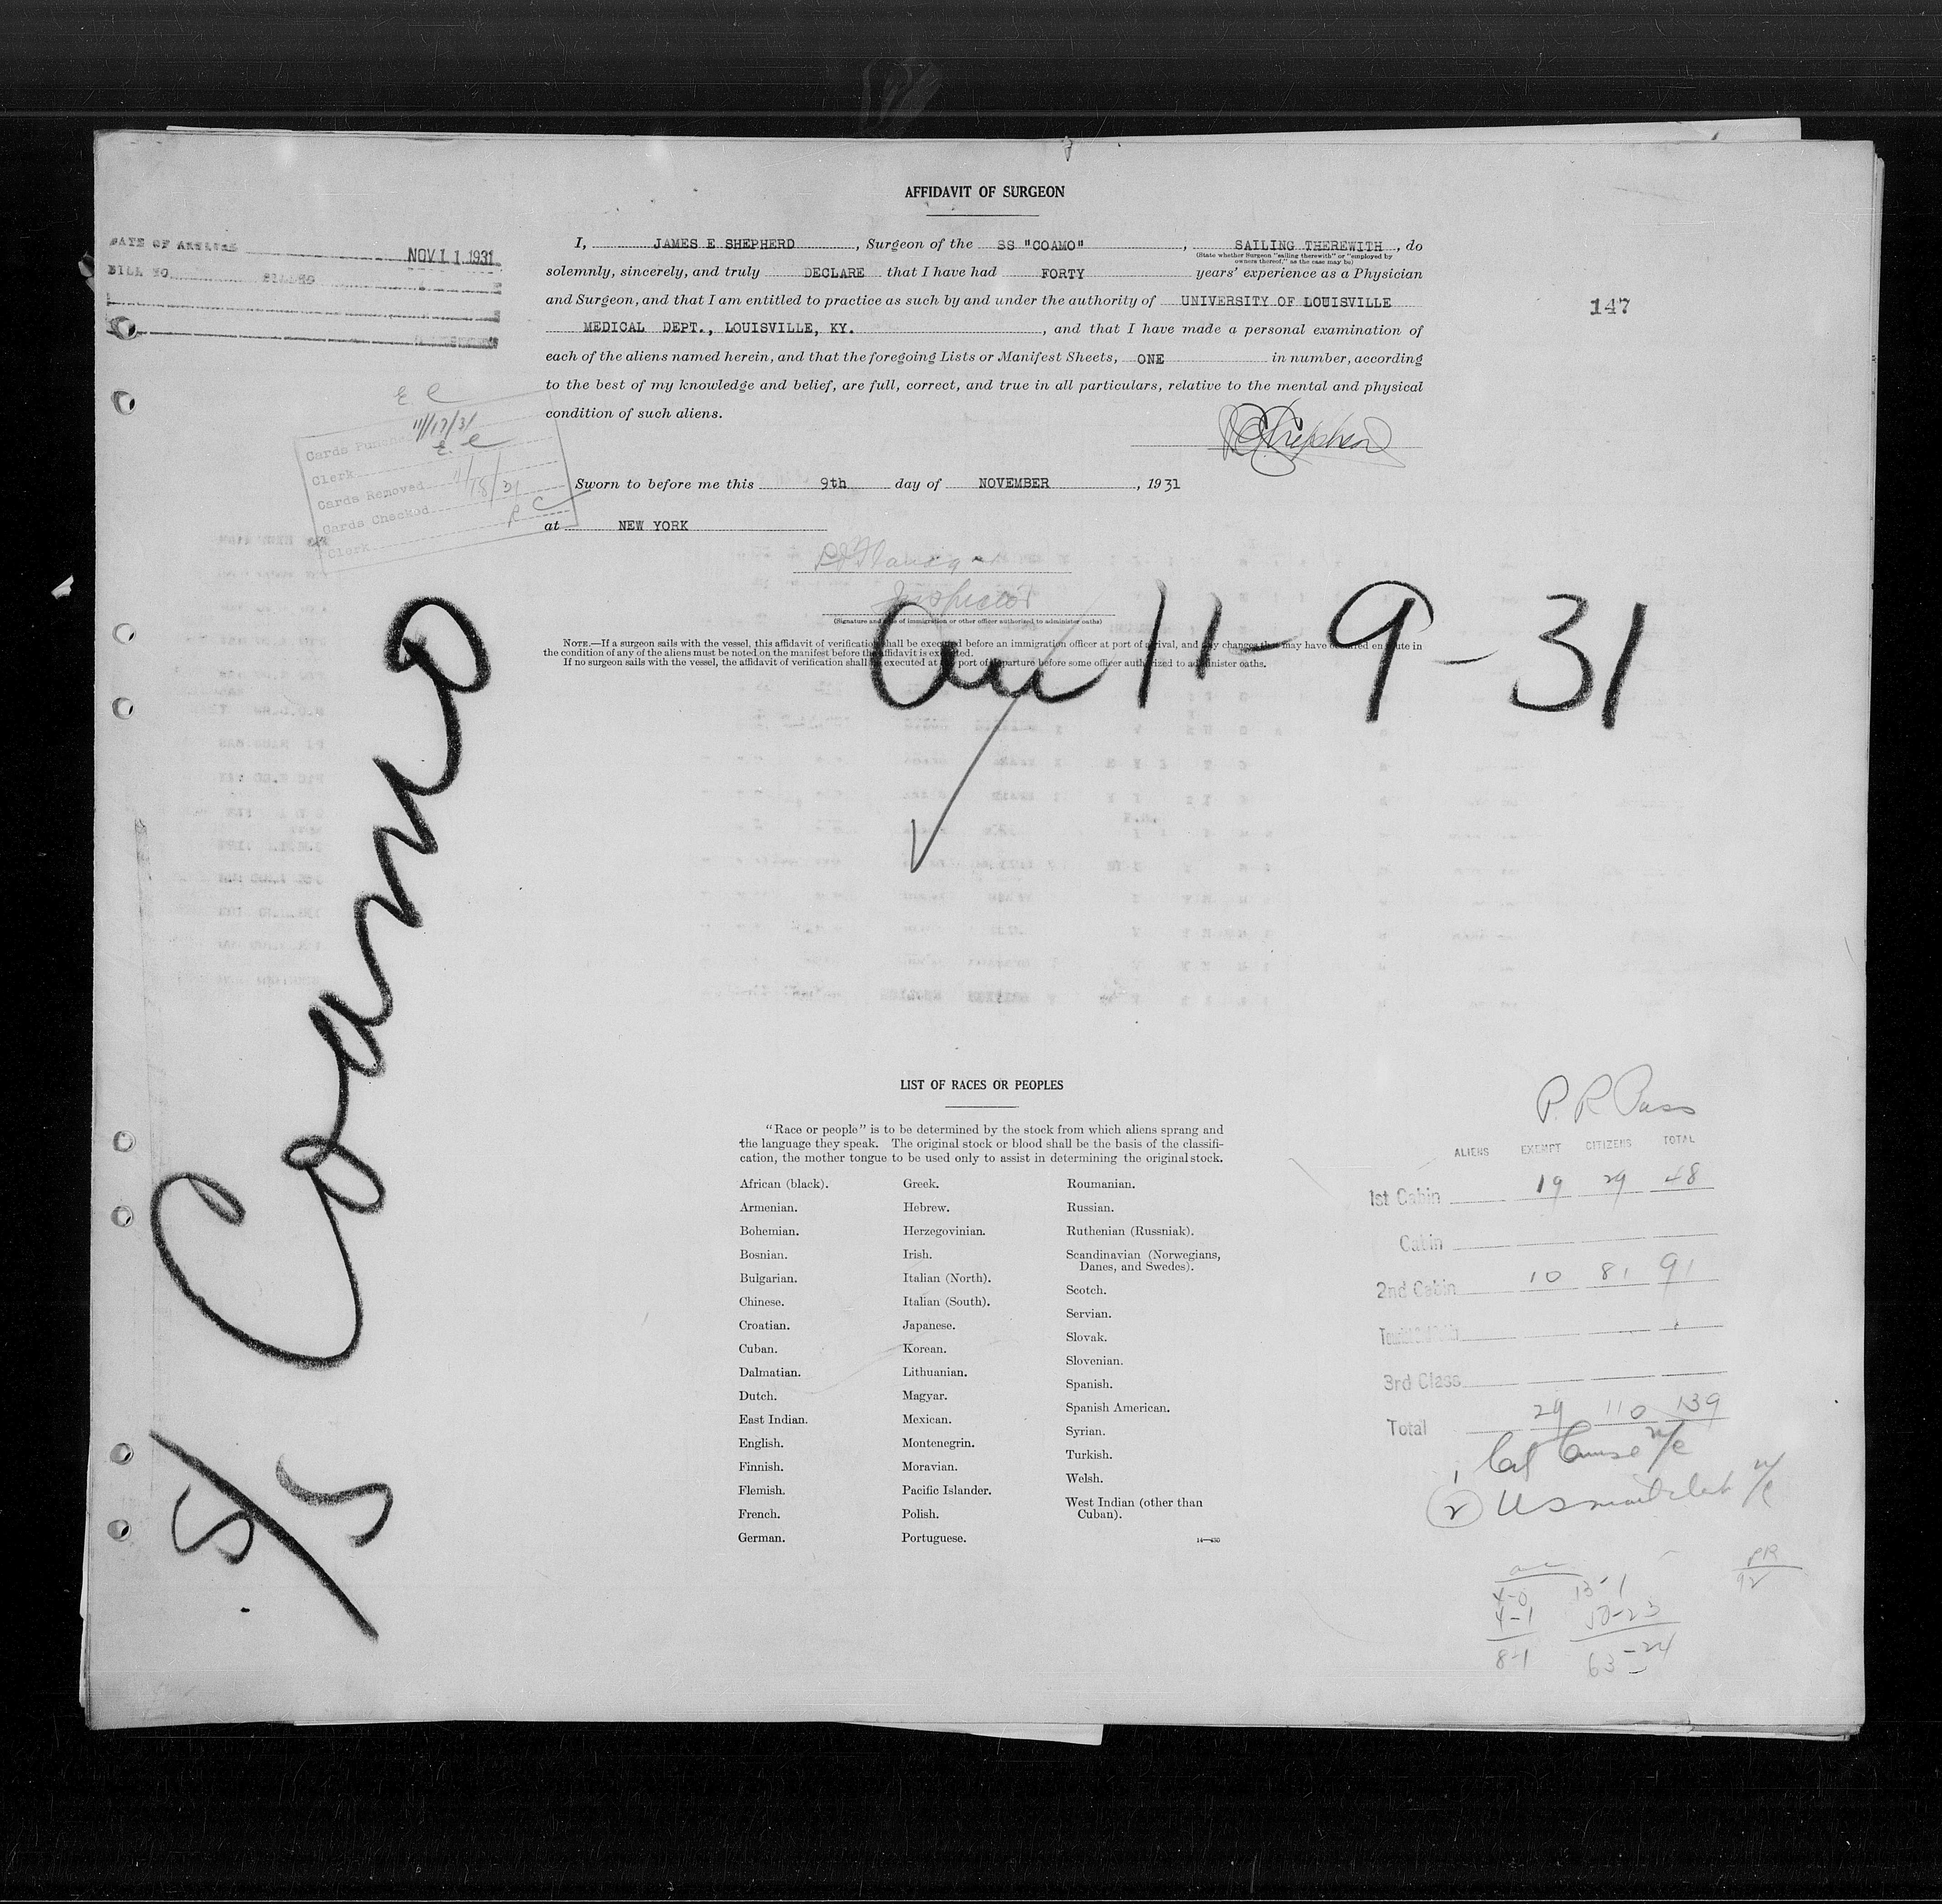 AFFIDAVIT OF SURGEON
I, JAMES E SHEPHERD, Surgeon of the SS "COAMO", SAILING THEREWITH, do
(State whether Surgeon "sailing therewith" or "employed by
owners thereof," as the case may be)
solemnly, sincerely, and truly DECLARE that I have had FORTY years' experience as a Physician
and Surgeon, and that I am entitled to practice as such by and under the authority of UNIVERSITY OF LOUISVILLE
MEDICAL DEPT., LOUISVILLE, KY., and that I have made a personal examination of
each of the aliens named herein, and that the foregoing Lists or Manifest Sheets, ONE in number, according
to the best of my knowledge and belief, are full, correct, and true in all particulars, relative to the mental and physical
condition of such aliens.
Sworn to before me this 9th day of NOVEMBER, 1931
at NEW YORK
Inspector
(Signature and title of immigration or other officer authorized to administer oaths)
NOTE.—If a surgeon sails with the vessel, this affidavit of verification shall be executed before an immigration officer at port of arrival, and any changes that may have occurred en route in
the condition of any of the aliens must be noted on the manifest before the affidavit is executed.
If no surgeon sails with the vessel, the affidavit of verification shall be executed at the port of departure before some officer authorized to administer oaths.
DATE OF ARRIVAL NOV 11 1931
147
E C
Cards Punched 11/17/31
Clerk E C
Cards Removed 11/18/31
Cards Checked
Clerk R C
Arr 11-9-31
S/S Coamo
LIST OF RACES OR PEOPLES
"Race or people" is to be determined by the stock from which aliens sprang and
the language they speak. The original stock or blood shall be the basis of the classifi-
cation, the mother tongue to be used only to assist in determining the original stock.
African (black).
Armenian.
Bohemian.
Bosnian.
Bulgarian.
Chinese.
Croatian.
Cuban.
Dalmatian.
Dutch.
East Indian.
English.
Finnish.
Flemish.
French.
German.
Greek.
Hebrew.
Herzegovinian.
Irish.
Italian (North).
Italian (South).
Japanese.
Korean.
Lithuanian.
Magyar.
Mexican.
Montenegrin.
Moravian.
Pacific Islander.
Polish.
Portuguese.
Roumanian.
Russian.
Ruthenian (Russniak).
Scandinavian (Norwegians,
Danes, and Swedes).
Scotch.
Servian.
Slovak.
Slovenian.
Spanish.
Spanish American.
Syrian.
Turkish.
Welsh.
West Indian (other than
Cuban).
P. R Pass
ALIENS EXEMPT CITIZENS TOTAL
1st Cabin 19 29 48
Cabin
2nd Cabin 10 81 91
3rd Class
Total 29 110 139
4-0 13-1
4-1 50-23
8-1 63-24
PR
92